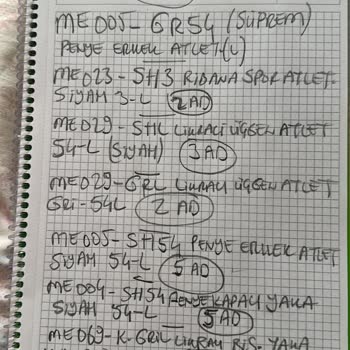 ME005-GR54 (SÜPREM)
PENYE ERKEK ATLET-(L)
ME023-SH3 RIBANA SPOR ATLET-
SİYAH 3-L 2AD
ME029-SHL LİKRALI ÜÇGEN ATLET
54-L (SİYAH) 3AD
ME029-GRL LİKRALI ÜÇGEN ATLET
GRİ-54L 2 AD
ME005-SH54 PENYE ERKEK ATLET
SİYAH 54-L 5 AD
ME004-SH54 PENYE KAPALI YAKA
SİYAH 54-L 5AD
ME069-K-GRİL LİKRALI YAKA